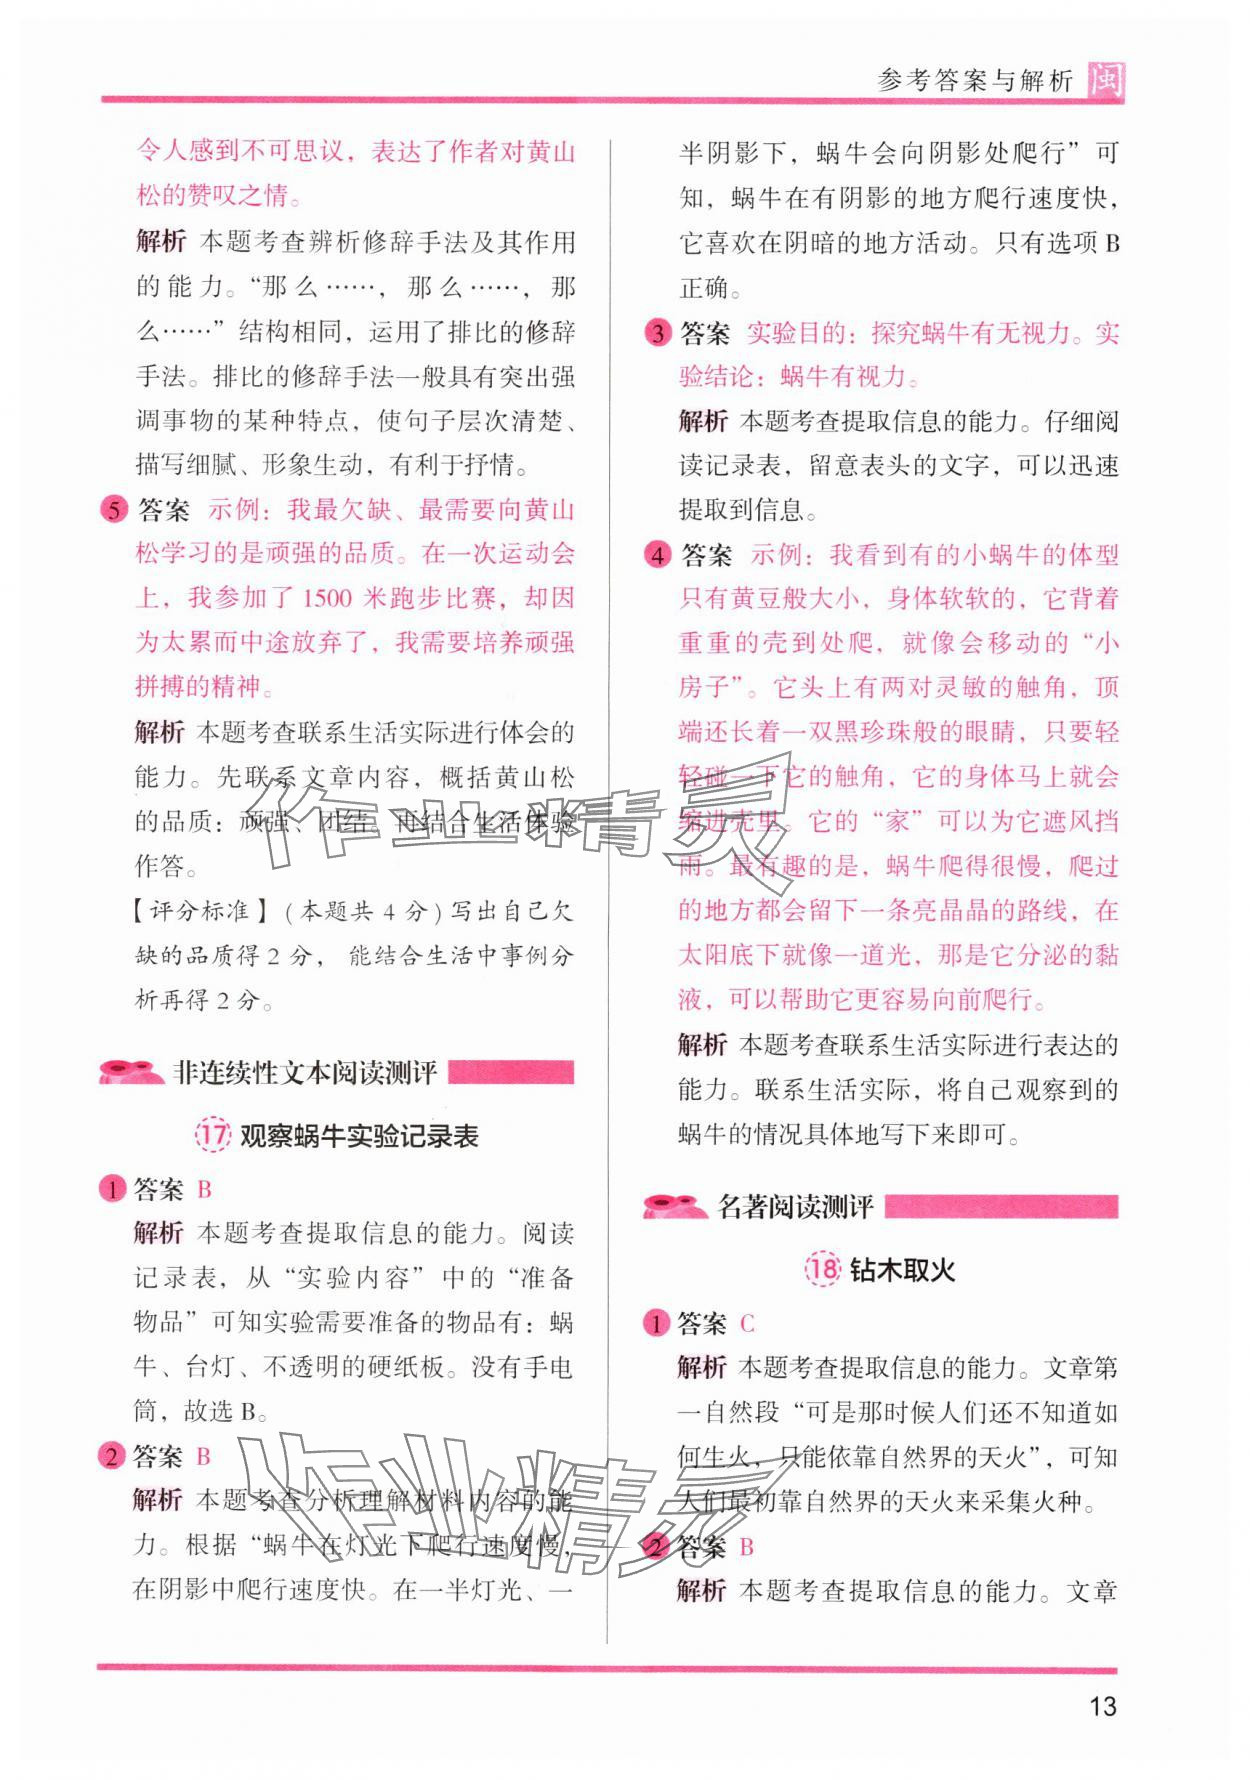 参考答案与解析 闽
令人感到不可思议，表达了作者对黄山
松的赞叹之情。
解析 本题考查辨析修辞手法及其作用
的能力。“那么……，那么……，那
么……”结构相同，运用了排比的修辞
手法。排比的修辞手法一般具有突出强
调事物的某种特点，使句子层次清楚、
描写细腻、形象生动，有利于抒情。
5 答案 示例：我最欠缺、最需要向黄山
松学习的是顽强的品质。在一次运动会
上，我参加了 1500 米跑步比赛，却因
为太累而中途放弃了，我需要培养顽强
拼搏的精神。
解析 本题考查联系生活实际进行体会的
能力。先联系文章内容，概括黄山松
的品质：顽强、团结。再结合生活体验
作答。
【评分标准】(本题共 4 分) 写出自己欠
缺的品质得 2 分，能结合生活中事例分
析再得 2 分。
非连续性文本阅读测评
17 观察蜗牛实验记录表
1 答案 B
解析 本题考查提取信息的能力。阅读
记录表，从“实验内容”中的“准备
物品”可知实验需要准备的物品有：蜗
牛、台灯、不透明的硬纸板。没有手电
筒，故选 B。
2 答案 B
解析 本题考查分析理解材料内容的能
力。根据“蜗牛在灯光下爬行速度慢，
在阴影中爬行速度快。在一半灯光、一
半阴影下，蜗牛会向阴影处爬行”可
知，蜗牛在有阴影的地方爬行速度快，
它喜欢在阴暗的地方活动。只有选项 B
正确。
3 答案 实验目的：探究蜗牛有无视力。实
验结论：蜗牛有视力。
解析 本题考查提取信息的能力。仔细阅
读记录表，留意表头的文字，可以迅速
提取到信息。
4 答案 示例：我看到有的小蜗牛的体型
只有黄豆般大小，身体软软的，它背着
重重的壳到处爬，就像会移动的“小
房子”。它头上有两对灵敏的触角，顶
端还长着一双黑珍珠般的眼睛，只要轻
轻碰一下它的触角，它的身体马上就会
缩进壳里。它的“家”可以为它遮风挡
雨。最有趣的是，蜗牛爬得很慢，爬过
的地方都会留下一条亮晶晶的路线，在
太阳底下就像一道光，那是它分泌的黏
液，可以帮助它更容易向前爬行。
解析 本题考查联系生活实际进行表达的
能力。联系生活实际，将自己观察到的
蜗牛的情况具体地写下来即可。
名著阅读测评
18 钻木取火
1 答案 C
解析 本题考查提取信息的能力。文章第
一自然段“可是那时候人们还不知道如
何生火，只能依靠自然界的天火”，可知
人们最初靠自然界的天火来采集火种。
2 答案 B
解析 本题考查提取信息的能力。文章
13
作业精灵
作业精灵